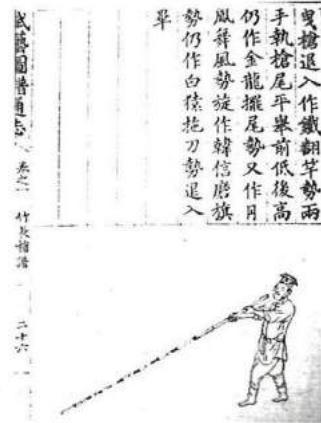 曳槍退入作鐵翻竿勢兩
手執槍尾平舉前低後高
仍作金龍擺尾勢又作丹
鳳舞風勢旋作韓信磨旗
勢仍作白猿拖刀勢退入
畢
武藝圖譜通志 卷之一 竹長槍譜 二十六